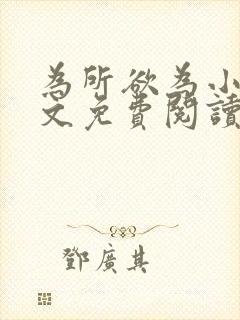 為所欲為小
文免費閱讀
鄧廣其